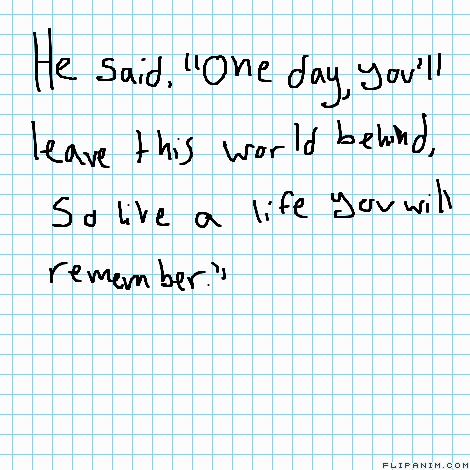 He said, "One day, you'll
leave this world behind,
So live a life you will
remember."
FLIPANIM.COM